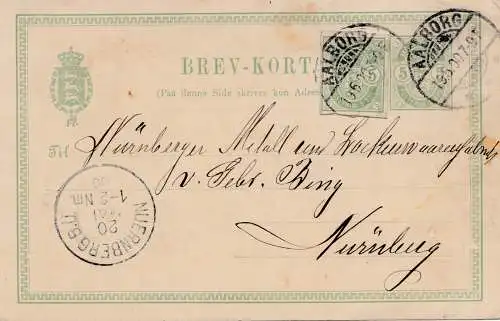 BREV-KORT
(Paa denne Side skrives kun Adres
AALBORG
5
AALBORG
5
Til Nürnberger Metall und Lackierwaarenfabrik
v. Gebr. Bing
Nürnberg
NUERNBERG 5
20
1-2 Nm.
00